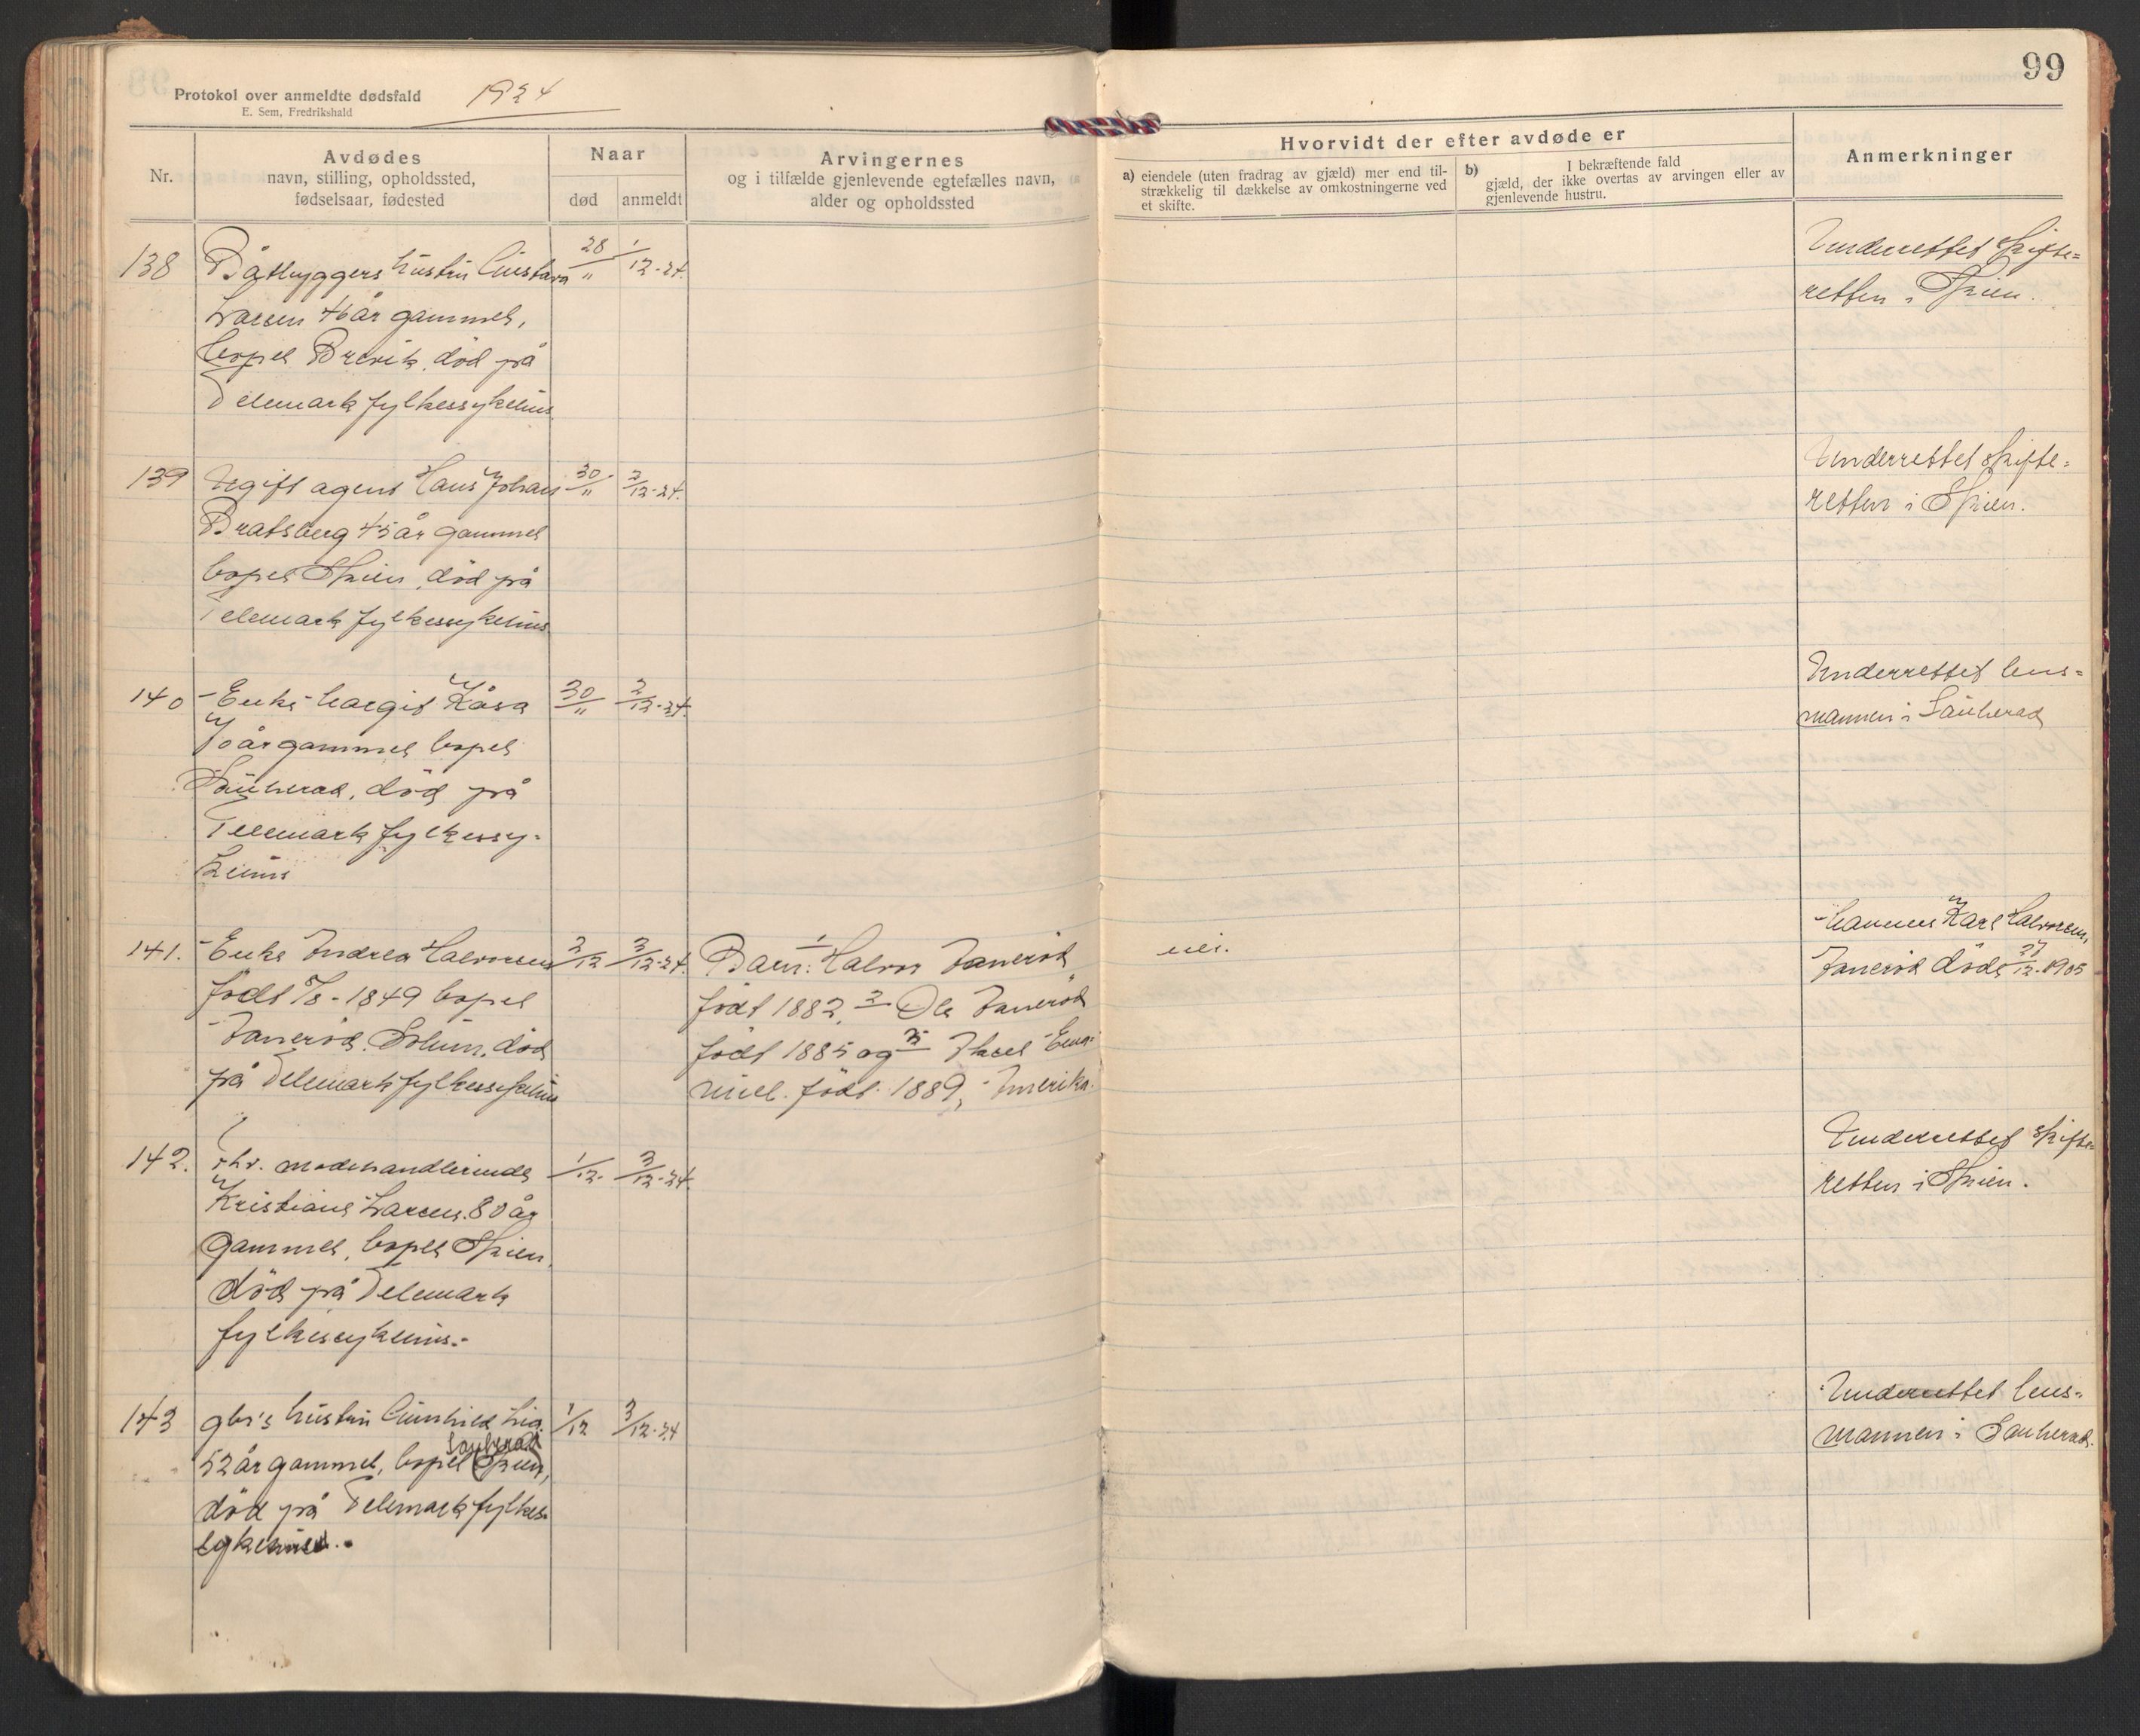 99
Protokol over anmeldte dødsfald 1924
E. Sem, Fredrikshald
Nr.
Avdødes
navn, stilling, opholdssted,
fødselsaar, fødested
Naar
død
anmeldt
Arvingernes
og i tilfælde gjenlevende egtefælles navn,
alder og opholdssted
Hvorvidt der efter avdøde er
a) eiendele (uten fradrag av gjæld) mer end til-
strækkelig til dækkelse av omkostningerne ved
et skifte.
b) I bekræftende fald
gjæld, der ikke overtas av arvingen eller av
gjenlevende hustru.
Anmerkninger
138 Båtbyggers hustru Gustava 28/11 1/12-24.
Larsen 46 år gammel,
bopel Brevik, död på
Telemark fylkessykehus.
Underrettet skifte=
retten i Skien.
139 Ugift agent Hans Johan 30/11 2/12-24.
Bratsberg 45 år gammel
bopel Skien, död på
Telemark fylkessykehus
Underrettet skifte=
retten i Skien.
140 Enke Margit Kåsa 30/11 2/12-24.
70 år gammel bopel
Sauherad, död på
Telemark fylkessy-
kehus
Underrettet lens=
mannen i Sauherad
141. Enke Andrea Halvorsen 2/12 3/12-24.
född /8-1849 bopel
Solum, död
på Telemark fylkessykehus
Barn: 1 Halvor
född 1882, 2 Ole
född 1885 og 3
född 1889, Amerika.
nei.
Mannen Karl Halvorsen,
döde 27/12-1905
142. fhv. motehandlerinde 1/12. 3/12-24.
Kristiane Larsen. 80 år
gammel, bopel Skien,
död på Telemark
fylkessykehus.-
Underrettet skifte-
retten i Skien.
143 gbr's hustru Gunhild Lia 1/12 3/12-24
52 år gammel, bopel (Skien) Sauherad,
död på Telemark fylkes-
sykehus.
Underrettet lens=
mannen i Sauherad.